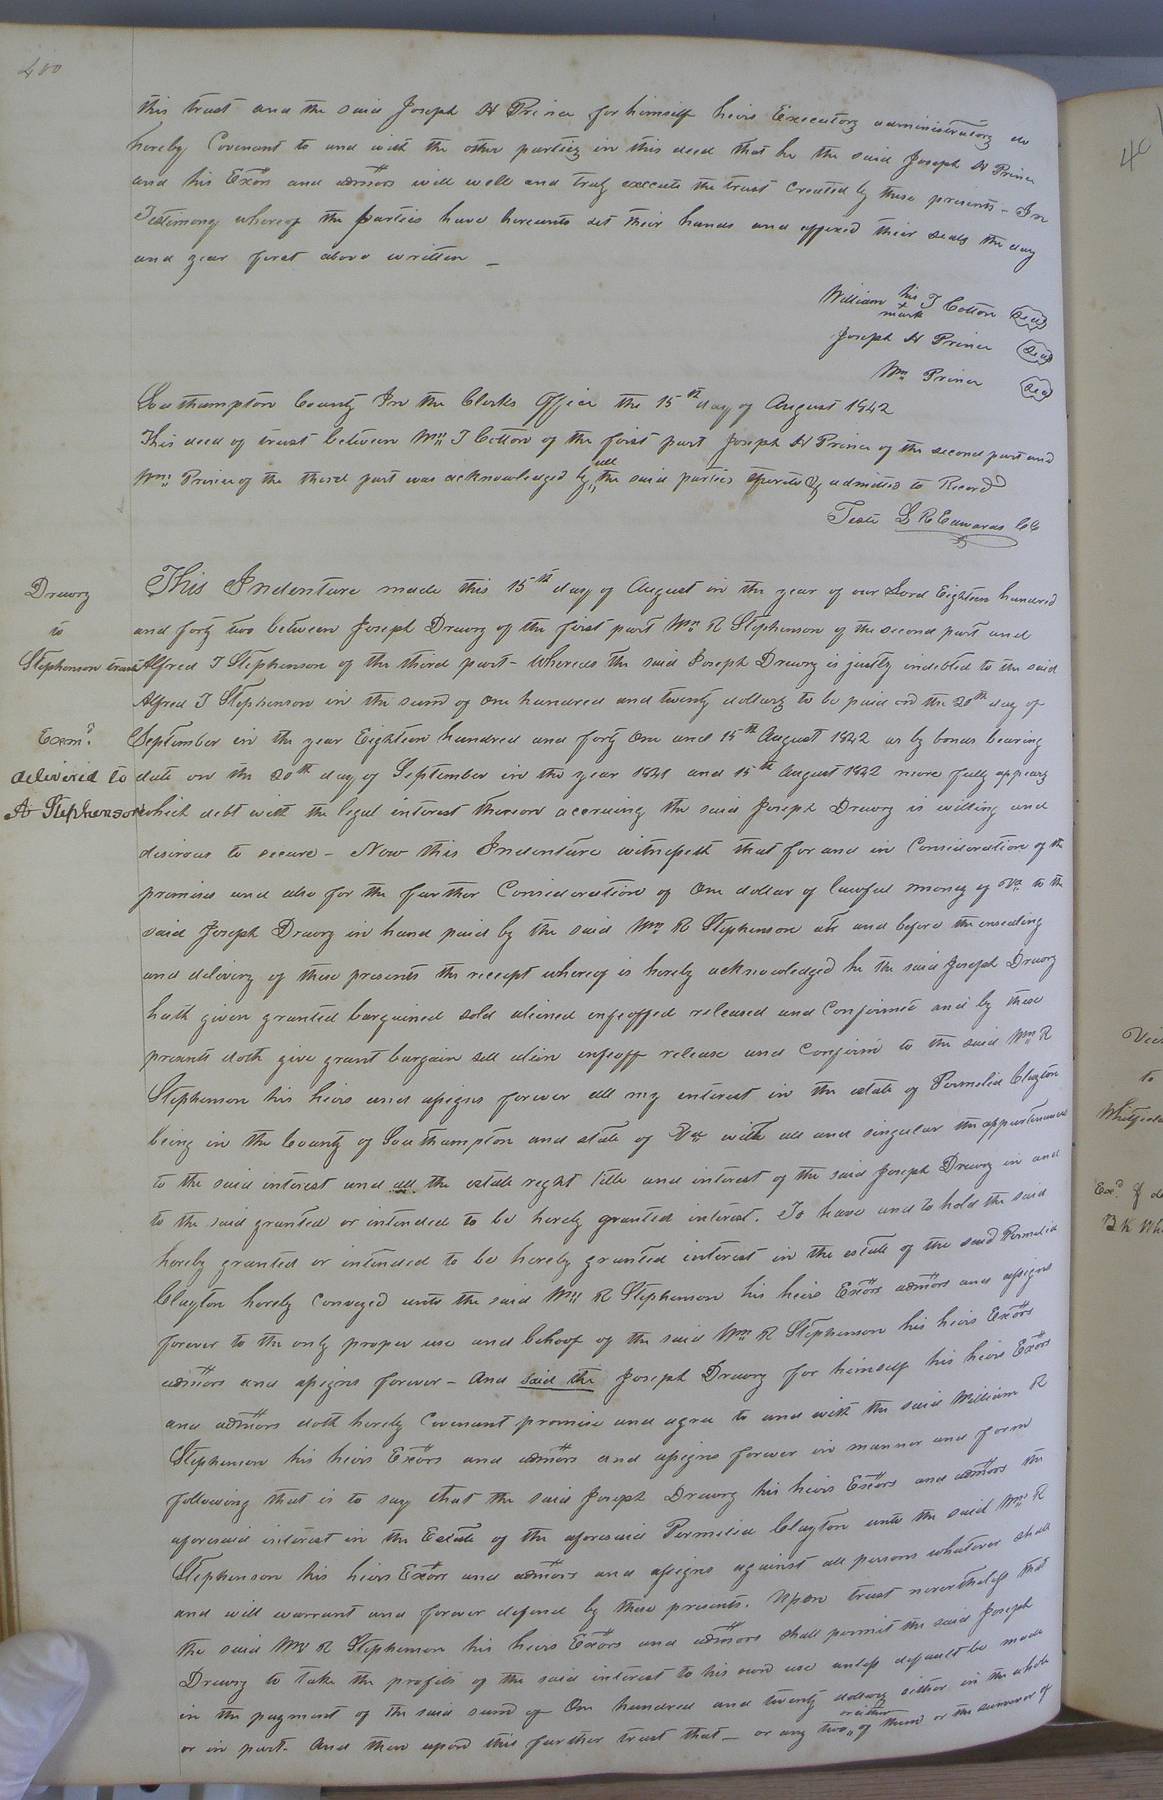 400
this trust and the said Joseph H Prince for himself heirs Executors administrators do
hereby Covenant to and with the other parties in this deed that he the said Joseph H Prince
and his Exors and admors will well and truly execute the trust created by these presents - In
Testimony whereof the parties have hereunto set their hands and affixed their seals the day
and year first above written -
William his T Cotton Seal
+
mark
Joseph H Prince Seal
Wm Prince Seal
Southampton County In the Clerks Office the 15th day of August 1842
This deed of trust between Wm T Cotton of the first part Joseph H Prince of the second part and
all
Wm Prince of the third part was acknowledged by the said parties thereto & admitted to Record
Teste L R Edwards CC
Drewry
to
Stephenson trust
Exmd
delivered to
A Stephenson
This Indenture made this 15th day of August in the year of our Lord Eighteen hundred
and forty two between Joseph Drewry of the first part Wm R Stephenson of the second part and
Alfred T Stephenson of the third part - Whereas the said Joseph Drewry is justly indebted to the said
Alfred T Stephenson in the sum of One hundred and twenty dollars to be paid on the 20th day of
September in the year Eighteen hundred and forty One and 15th August 1842 as by bonds bearing
date on the 20th day of September in the year 1841 and 15th August 1842 more fully appears
which debt with the legal interest thereon accruing the said Joseph Drewry is willing and
desirous to secure - Now this Indenture witnesseth that for and in Consideration of the
premises and also for the further Consideration of One dollar of lawful money of Va to the
said Joseph Drewry in hand paid by the said Wm R Stephenson at and before the ensealing
and delivery of these presents the receipt whereof is hereby acknowledged he the said Joseph Drewry
hath given granted bargained sold aliened enfeoffed released and Confirmed and by these
presents doth give grant bargain sell alien enfeoff release and Confirm to the said Wm R
Stephenson his heirs and assigns forever all my interest in the estate of Permelia Clayton
being in the County of Southampton and state of Va with all and singular the appurtenances
to the said interest and all the estate right title and interest of the said Joseph Drewry in and
to the said granted or intended to be hereby granted interest. To have and to hold the said
hereby granted or intended to be hereby granted interest in the estate of the said Permelia
Clayton hereby Conveyed unto the said Wm R Stephenson his heirs Exors admors and assigns
forever to the only proper use and behoof of the said Wm R Stephenson his heirs Exors
admors and assigns forever - And said the Joseph Drewry for himself his heirs Exors
and admors doth hereby Covenant promise and agree to and with the said William R
Stephenson his heirs Exors and admors and assigns forever in manner and form
following that is to say that the said Joseph Drewry his heirs Exors and admors the
aforesaid interest in the Estate of the aforesaid Permelia Clayton unto the said Wm R
Stephenson his heirs Exors and admors and assigns against all persons whatever shall
and will warrant and forever defend by these presents. Upon trust nevertheless that
the said Wm R Stephenson his heirs Exors and admors shall permit the said Joseph
Drewry to take the profits of the said interest to his own use unless default be made
in the payment of the said sum of One hundred and twenty dollars either in the whole
or either
or in part. And then upon this further trust that - or any two of them or the survivor of
40
to